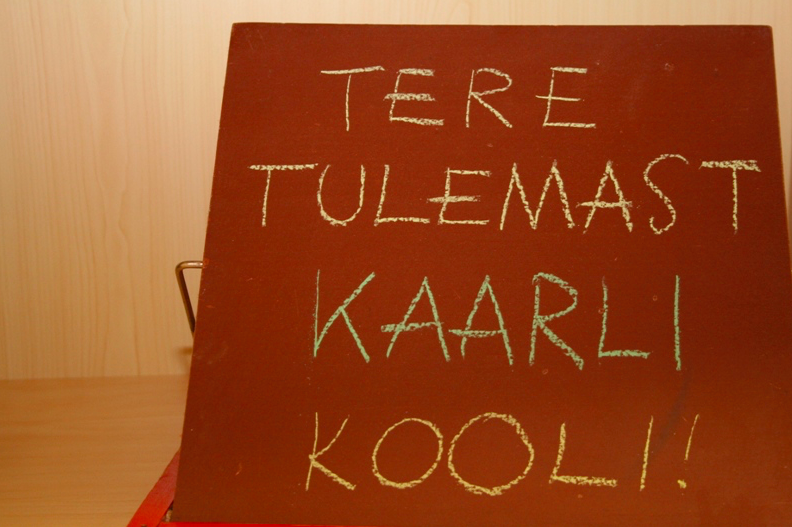 TERE
TULEMAST
KAARLI
KOOLI!